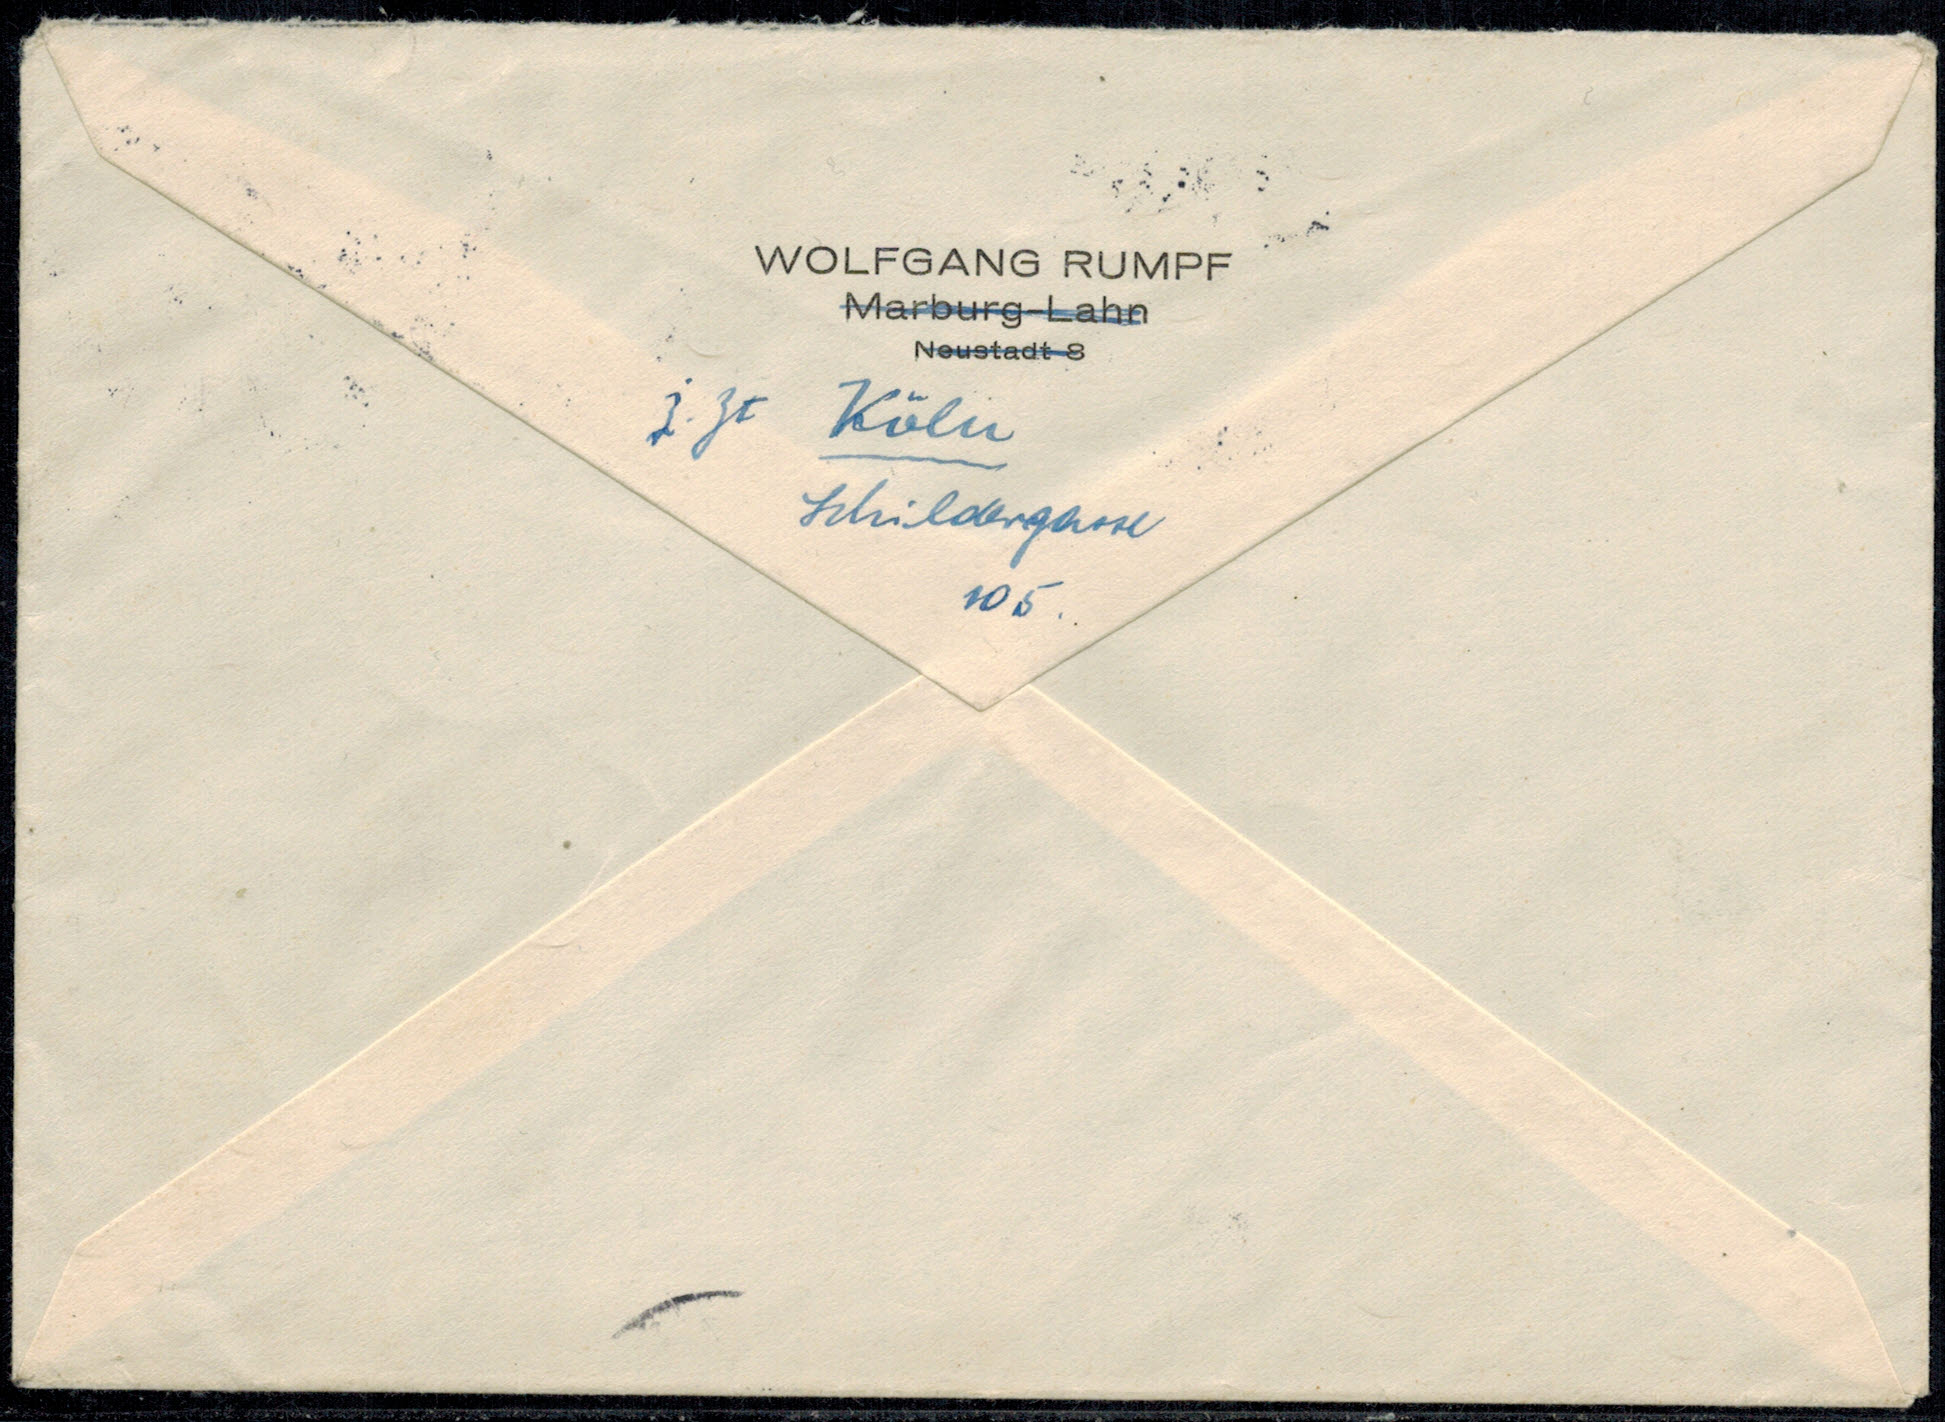 WOLFGANG RUMPF
Marburg-Lahn
Neustadt 8
z. Zt Köln
Schildergasse
105.